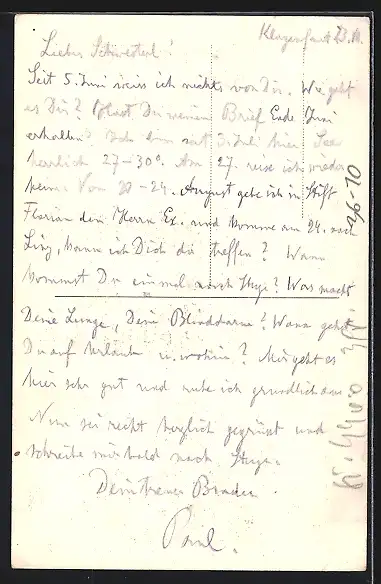 Klagenfurt 23.VII.
Liebes Schwesterl!
Seit 5. Juni weiss ich nichts von Dir. Wie geht
es Dir? Hast Du meinen Brief Ende Juni
erhalten? Ich bin seit 3. Juli hier. See
herrlich 27-30°. Am 27. reise ich wieder
heim. Vom 20-24. August gehe ich in Stift
Florian den Herrn Ex. und komme am 24. nach
Linz, kann ich Dich da treffen? Wann
kommst Du einmal nach Steyr? Was macht
Deine Lunge, Dein Blinddarm? Wann gehst
Du auf Urlaub u. wohin? Mir geht es
hier sehr gut und ruhe ich gründlich aus.
Nun sei recht herzlich gegrüsst und
schreibe mir bald nach Steyr.
Dein treuer Bruder
Paul.
26-10